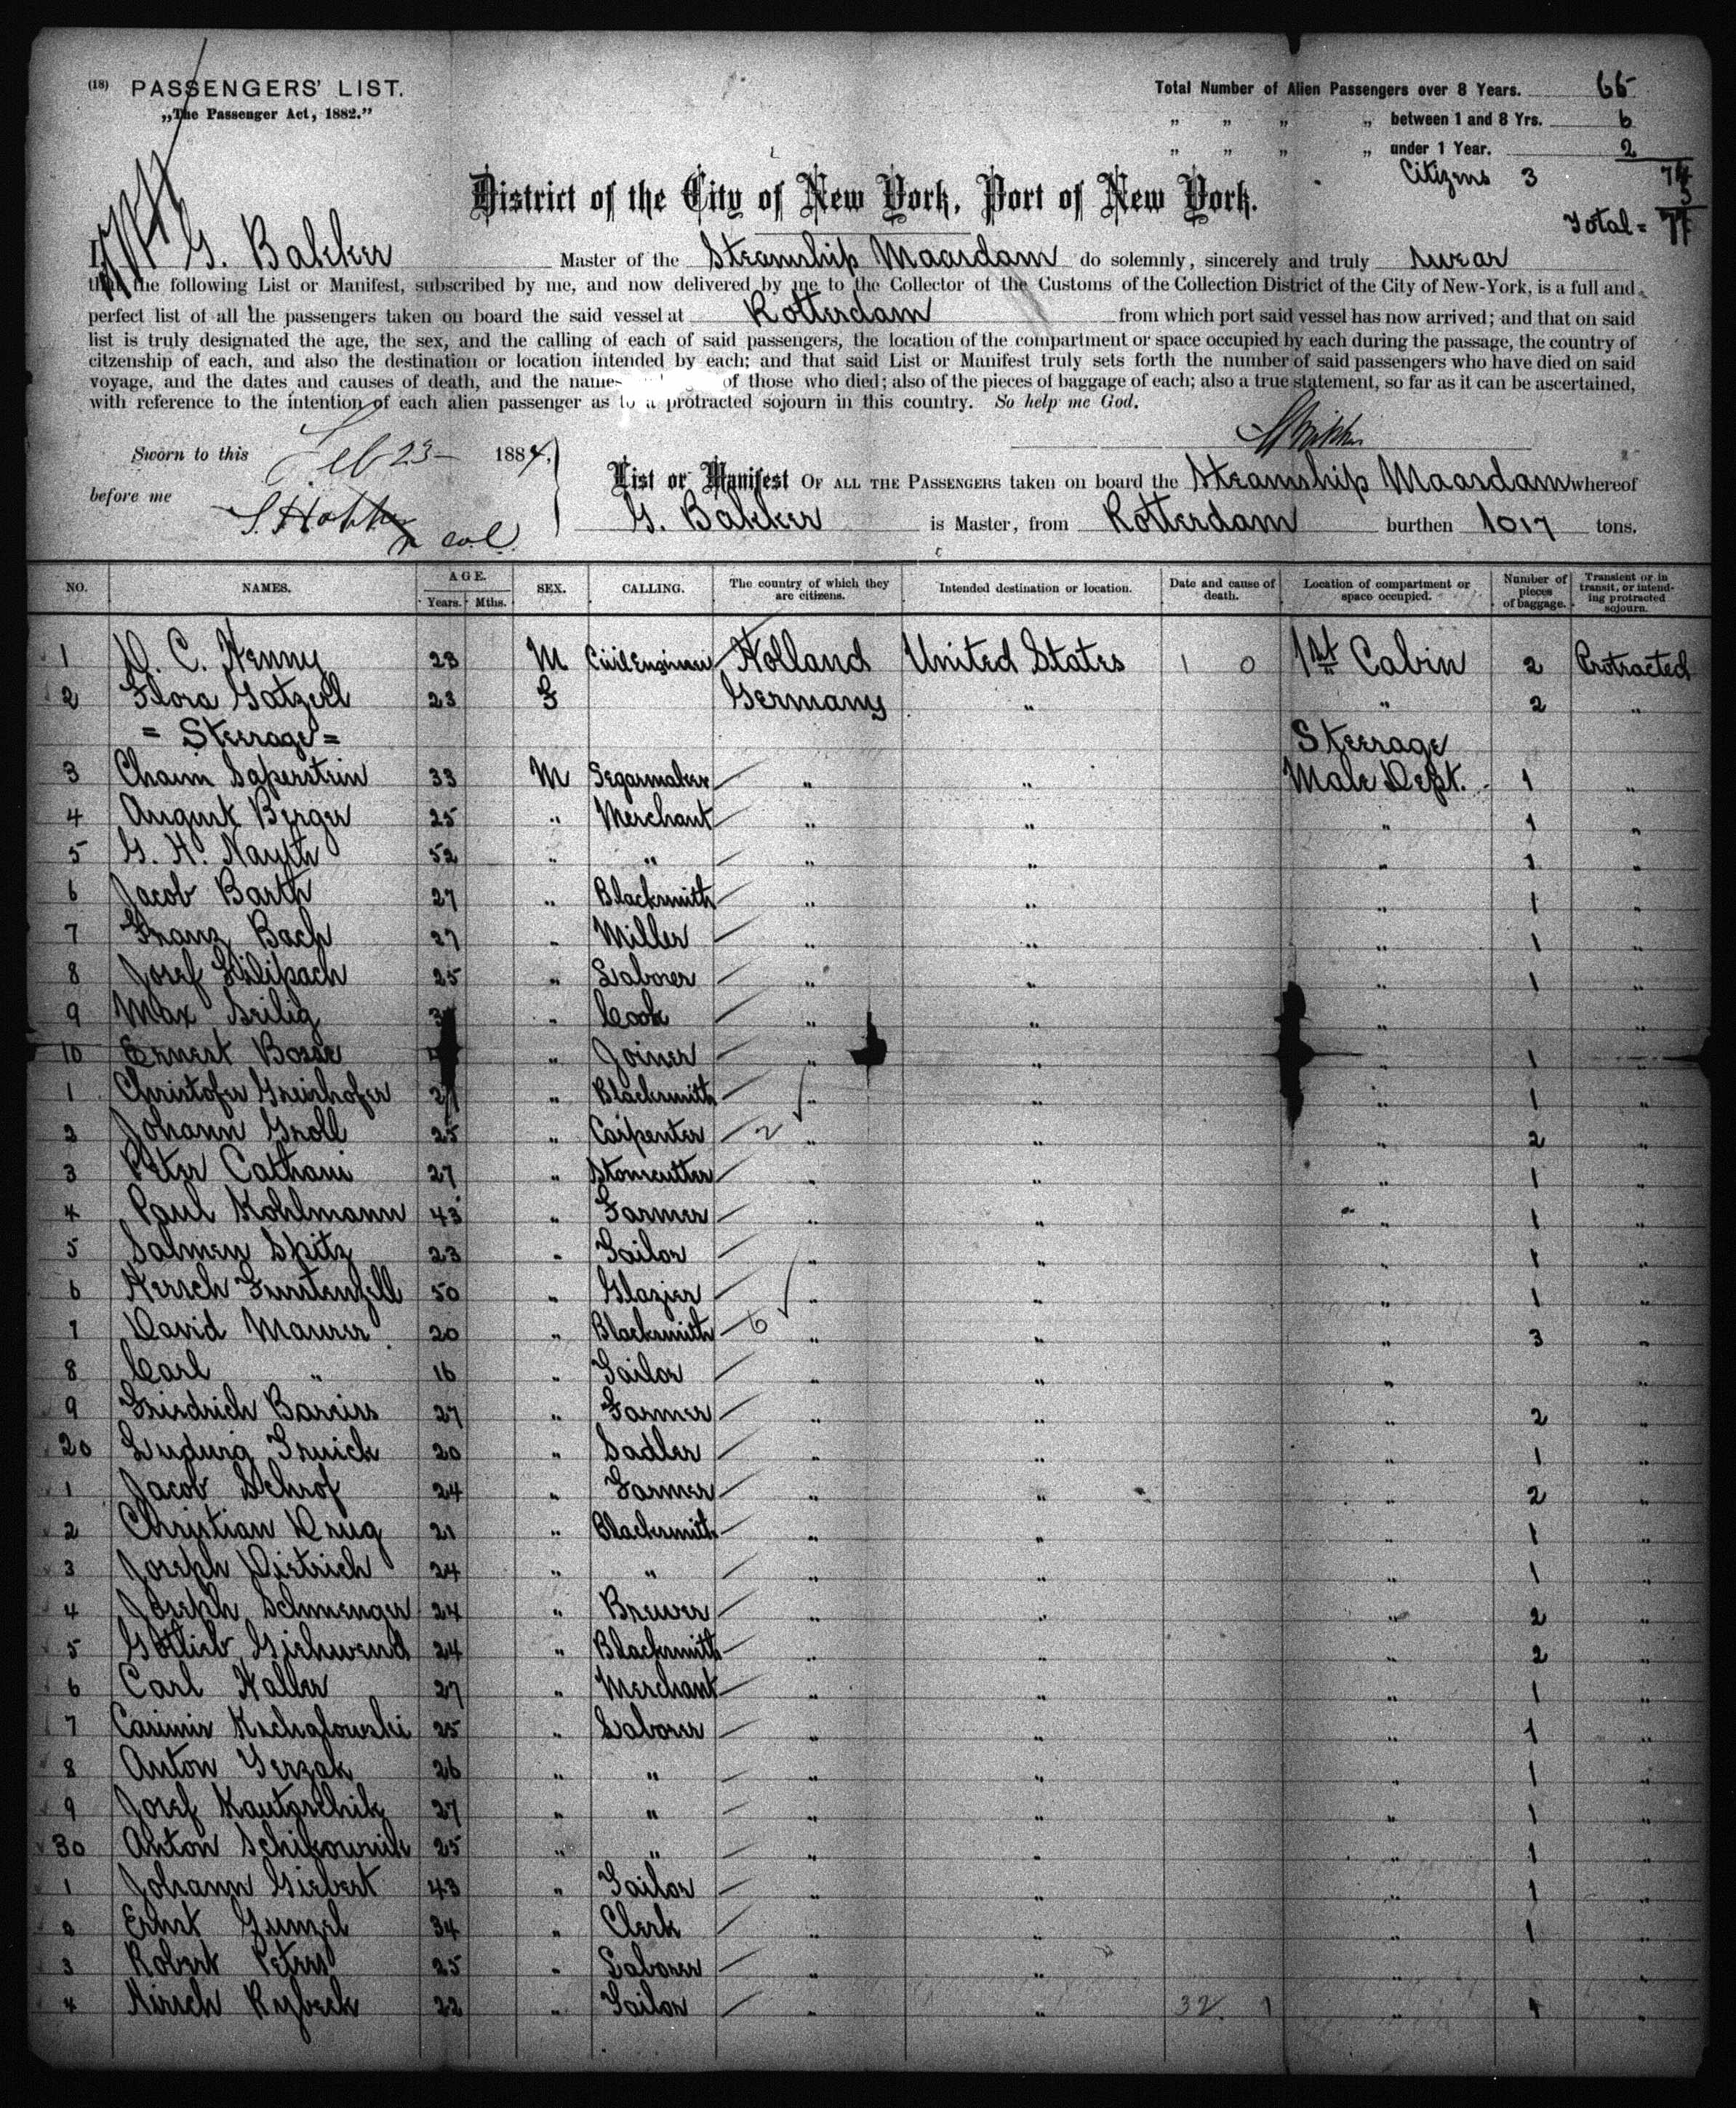 (18) PASSENGERS' LIST.
„The Passenger Act, 1882."
Total Number of Alien Passengers over 8 Years. 66
„ „ „ „ between 1 and 8 Yrs. 6
„ „ „ „ under 1 Year. 2
Citizens 3 74
3
Total = 77
District of the City of New York, Port of New York.
I, G. Bakker Master of the Steamship Maasdam do solemnly, sincerely and truly swear
that the following List or Manifest, subscribed by me, and now delivered by me to the Collector of the Customs of the Collection District of the City of New-York, is a full and
perfect list of all the passengers taken on board the said vessel at Rotterdam from which port said vessel has now arrived; and that on said
list is truly designated the age, the sex, and the calling of each of said passengers, the location of the compartment or space occupied by each during the passage, the country of
citzenship of each, and also the destination or location intended by each; and that said List or Manifest truly sets forth the number of said passengers who have died on said
voyage, and the dates and causes of death, and the name of those who died; also of the pieces of baggage of each; also a true statement, so far as it can be ascertained,
with reference to the intention of each alien passenger as to a protracted sojourn in this country. So help me God.
Sworn to this Feb 23 1884,
before me
List or Manifest OF ALL THE PASSENGERS taken on board the Steamship Maasdam whereof
G. Bakker is Master, from Rotterdam burthen 1017 tons.
NO. NAMES. AGE. Years. Mths. SEX. CALLING. The country of which they are citizens. Intended destination or location. Date and cause of death. Location of compartment or space occupied. Number of pieces of baggage. Transient or in transit, or intending protracted sojourn.
1 D. C. Henny 23 M Civil Engineer Holland United States 1 0 1st Cabin 2 Protracted
2 Flora Gatzell 23 F Germany „ „ 2 „
= Steerage = Steerage
3 Chaim Saperstein 33 M Segarmaker „ „ Male Dept. 1 „
4 August Berger 25 „ Merchant „ „ „ 1 „
5 G. H. 52 „ „ „ „ „ 1 „
6 Jacob Barth 27 „ Blacksmith „ „ „ 1 „
7 Franz Bach 27 „ Miller „ „ „ 1 „
8 Josef 25 „ Laborer „ „ „ 1 „
9 Max Seilig „ Cook „ „ „ „
10 Ernest Bosse „ Joiner „ „ 1 „
1 Christofer Greishofer „ Blacksmith „ „ „ 1 „
2 Johann Groll 25 „ Carpenter 2 „ „ „ 2 „
3 Peter Cathani 27 „ Stonecutter „ „ „ 1 „
4 Paul Kohlmann 43 „ Farmer „ „ „ 1 „
5 Salmen Spitz 23 „ Tailor „ „ „ 1 „
6 Hersch Furstenzell 50 „ Glazier „ „ „ 1 „
7 David Maurer 20 „ Blacksmith 6 „ „ „ 3 „
8 Carl „ 16 „ Tailor „ „ „ „
9 Friedrich Barriss 27 „ Farmer „ „ „ 2 „
20 Ludwig 20 „ Sadler „ „ „ 1 „
1 Jacob Schrof 24 „ Farmer „ „ „ 2 „
2 Christian Krug 21 „ Blacksmith „ „ „ 1 „
3 Joseph Dietrich 24 „ „ „ „ „ 1 „
4 Joseph Schmenger 24 „ Brewer „ „ „ 2 „
5 Gottlieb Gschwend 24 „ Blacksmith „ „ „ 2 „
6 Carl Haller 27 „ Merchant „ „ „ 1 „
7 Casimir Kschalowski 25 „ Laborer „ „ „ 1 „
8 Anton Gerzak 26 „ „ „ „ „ 1 „
9 Josef Kautaschik 27 „ „ „ „ „ 1 „
30 Anton Schikownik 25 „ „ „ „ „ 1 „
1 Johann Giebert 43 „ Tailor „ „ „ 1 „
2 Ernst Gunzel 34 „ Clerk „ „ „ 1 „
3 Robert Peters 25 „ Laborer „ „ „ „
4 Hirsch Rybeck 22 „ Tailor „ „ 32 1 „ 1 „